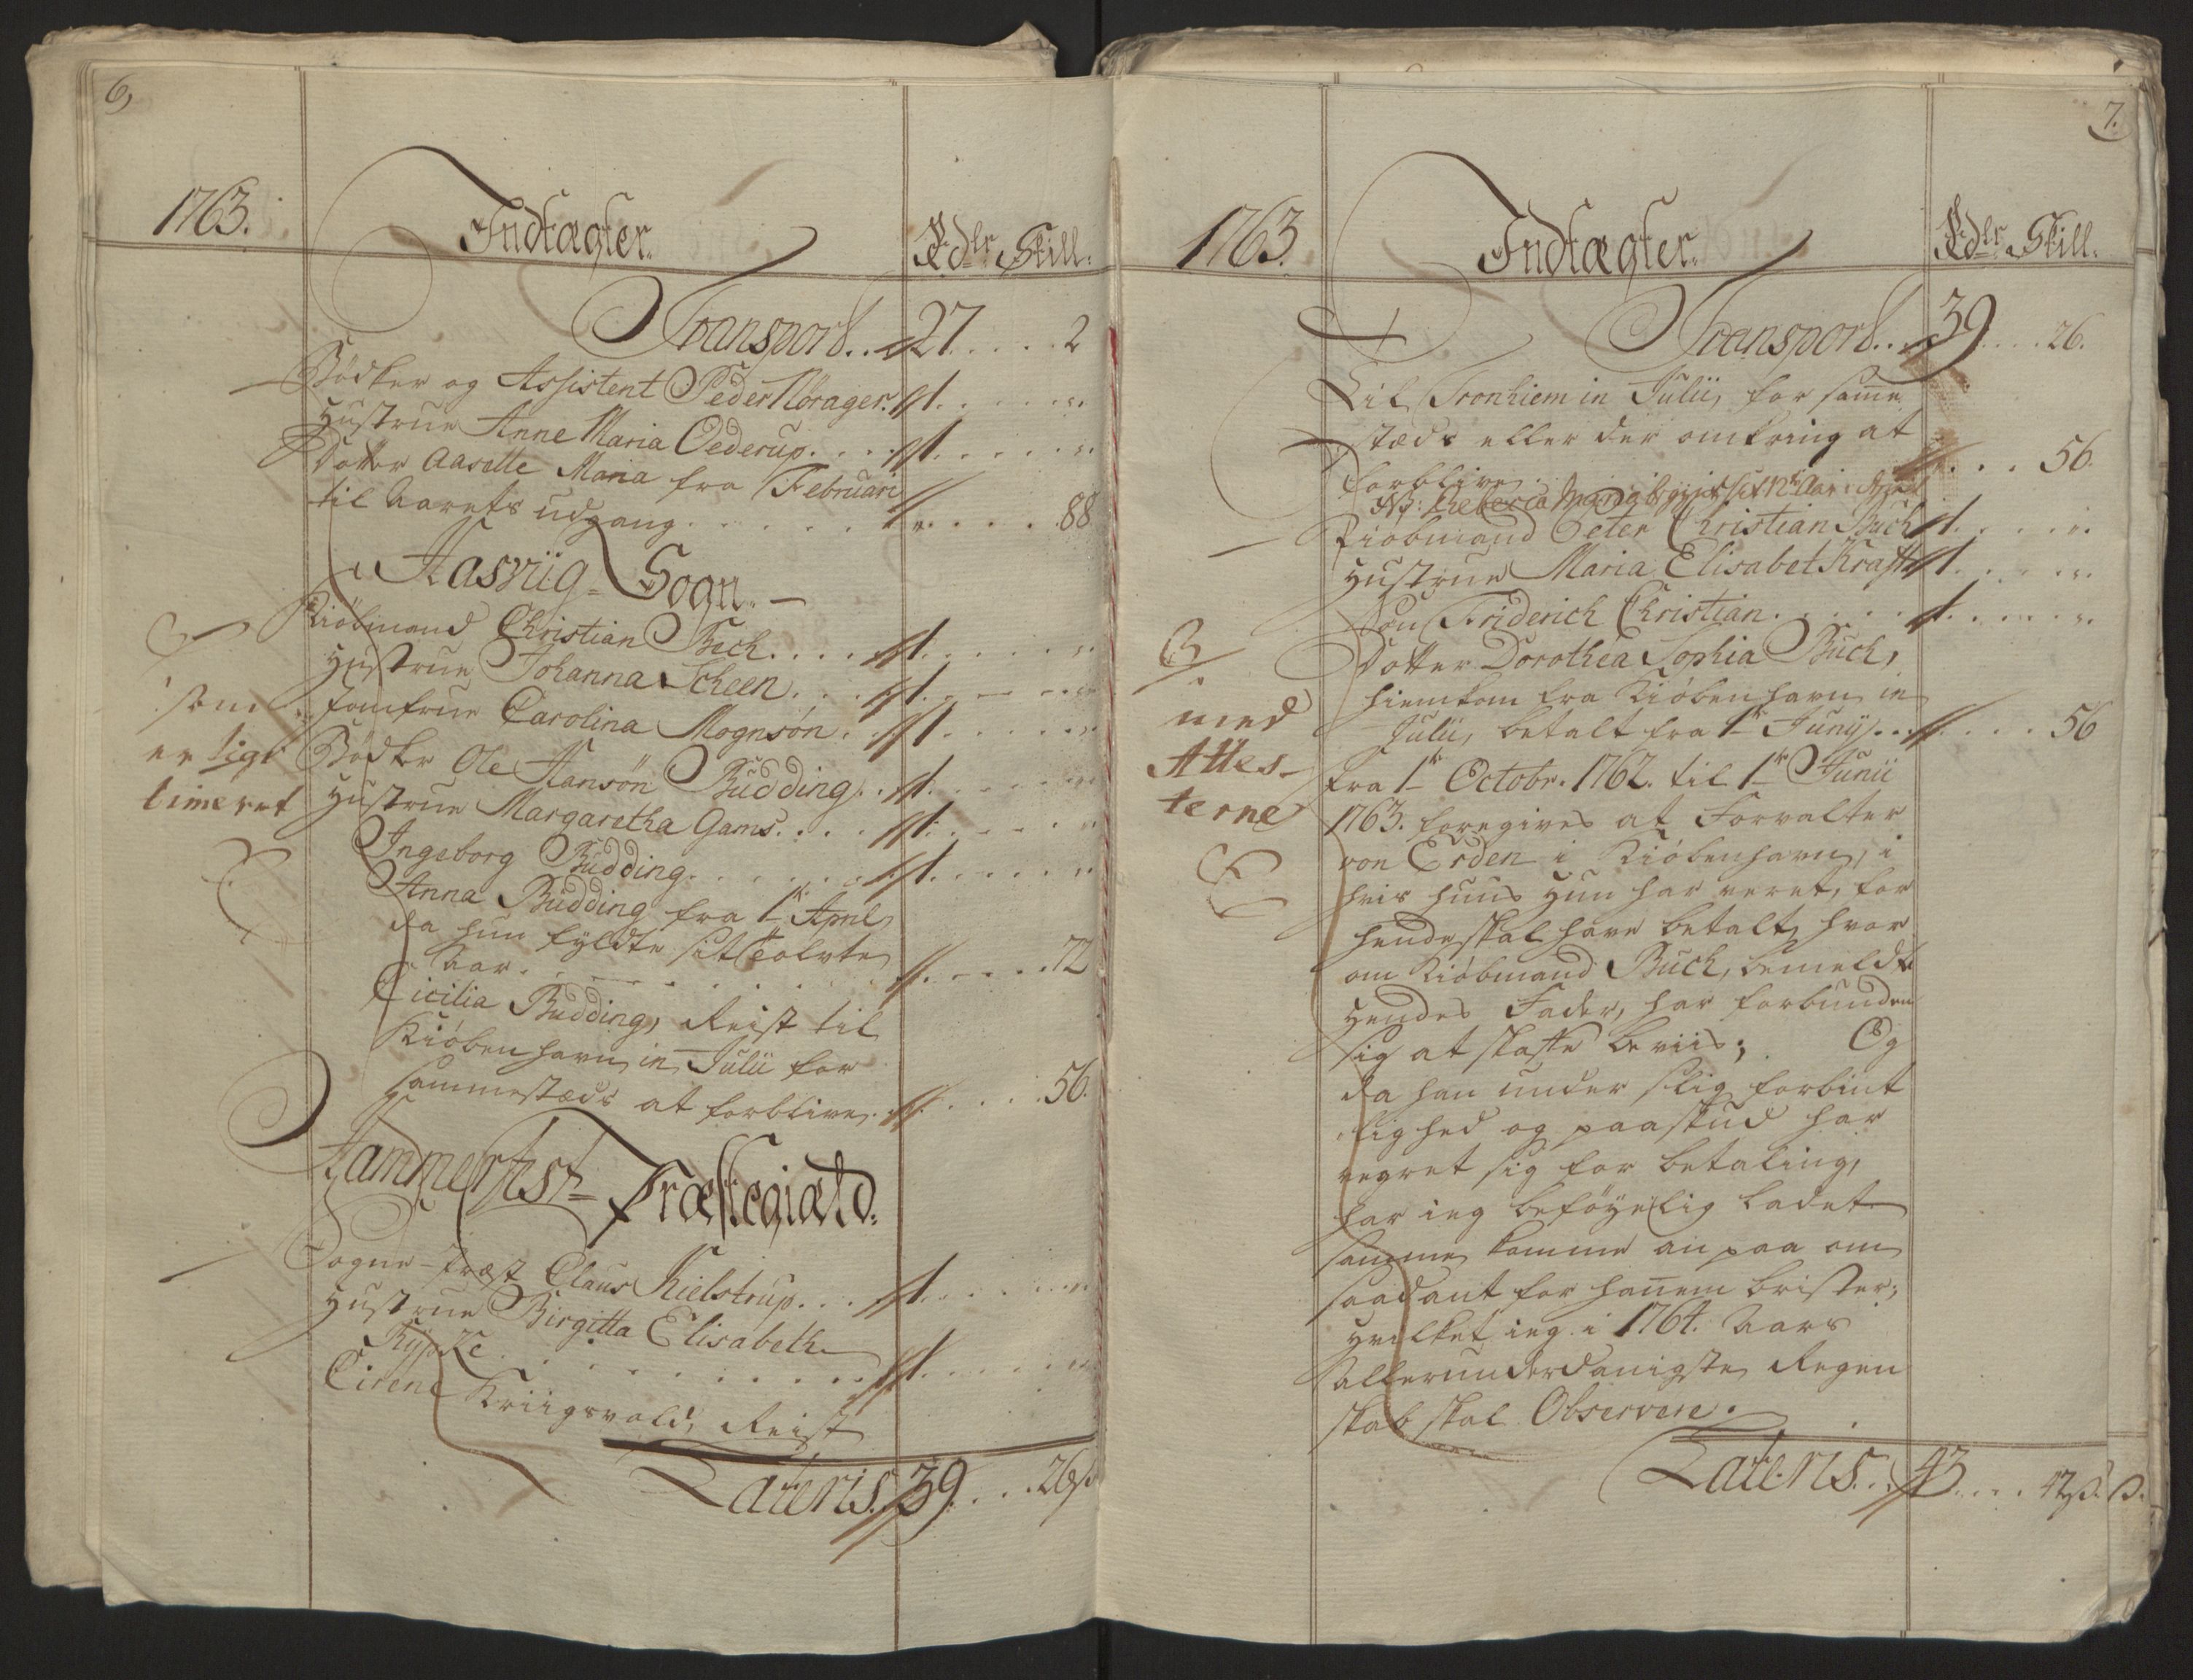 6,
1763.
Indtægter.
Rdlr Skill:
Transport. . 27 . . . . 2
Bödker og Assistent Peder Nörager. 1. . . . "
Hustrue Anne Maria Oederup. . . . 1. . . . "
Dotter Aaselle Maria fra Februari
til Aarets udgang. . . . . . . . . 88
Hasviig = Sogn. —
Kiöbmand Christian Buch. . . . 1. . . . "
Hustrue Johanna Scheen. . . . 1. . . . "
Jomfrue Carolina Mognsön. . 1. . . . "
Bödker Ole Hansön Büdding. . 1. . . . "
Hustrue Margaretha Gams. . . . 1. . . . "
Ingeborg Büdding. . . . . . . 1. . . . "
Anna Büdding fra 1te April
da hun fyldte sit tolvte
Aar. . . . . . . . . . . 72
Cicilia Büdding, Reist til
Kiöbenhavn in Julii for
sammestæds at forblive. . . . . 56.
som
er ligt
timeret
Hammerfest = Præstegiæld.
Sogne-Præst Claus Kielstrup. . . 1. . . . "
Hustrue Birgitta Elisabeth
Rypke . . . . . . . . . 1. . . . "
Cirene Kriigsvold, Reist
Lateris. 39. . . . 26ß
7.
1763.
Indtægter.
Rdlr Skill:
Transport. . 39 . . . . 26.
Til Tronhiem in Julii, for samme
stæds eller der omkring at
forblive. . . . 56.
NB: Rebecca Maria
Kiöbmand Peter Christian Buch 1. . . . "
Hustrue Maria Elisabet Krafft 1. . . . "
Sön Friderich Christian. . . . . 1. . . . "
Dotter Dorothea Sophia Buch,
hiemkom fra Kiöbenhavn in
Julii, betalt fra 1te Junij. . . . . 56
fra 1te Octobr. 1762. til 1te Junii
1763. foregives at Forvalter
von Erden i Kiöbenhavn, i
hvis huus hun har veret, for
hende skal have betalt, hvor
om Kiöbmand Buch, bemeldte
hendes Fader, har forbunden
sig at skaffe beviis; Og
da han under slig forbint
lighed og paaskud har
vegret sig for betaling,
har ieg beföyelig ladet
samme komme an paa om
saadant for hanem brister;
hvilket ieg i 1764. Aars
allerunderdanigste Regen
skab skal Observere.
med
Attes-
terne
Lateris. . . 43. . . . 42ß. ß.